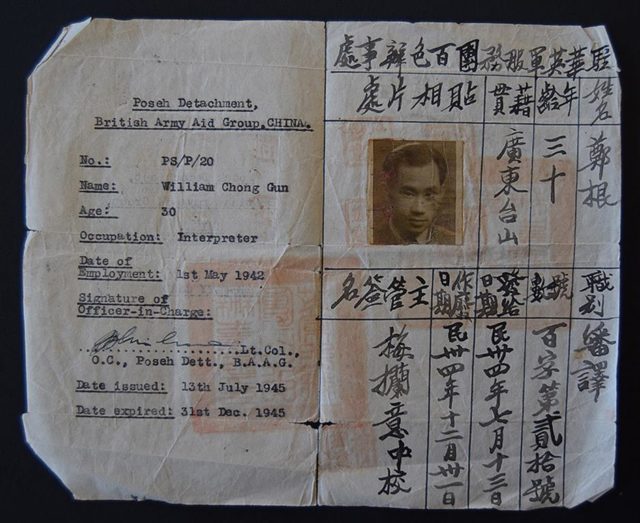 Poseh Detachment,
British Army Aid Group,CHINA.
No.: PS/P/20
Name: William Chong Gun
Age: 30
Occupation: Interpreter
Date of
Employment: 1st May 1942
Signature of
Officer-in-Charge:
Lt.Col.,
O.C., Poseh Dett., B.A.A.G.
Date issued: 13th July 1945
Date expired: 31st Dec. 1945
駐華英軍服務團百色辦事處
姓名
鄭根
年齡
三十
籍貫
廣東台山
貼相片處
職別
繙譯
號數
百字第貳拾號
發給日期
民卅四年七月十三日
作廢日期
民卅四年十二月卅一日
主管簽名
梅攔意中校